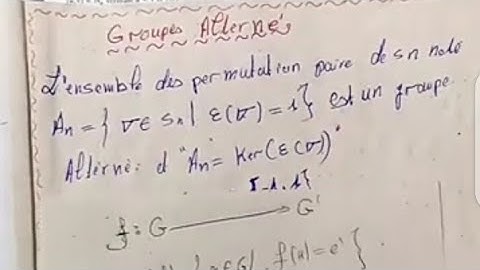 Groupes Alterné
L'ensemble des permutation paire de Sn noté
An = { σ ∈ Sn | ε(σ) = 1 } est un groupe
Alterné: d "An = Ker(ε(σ))"
{-1, 1}
f: G ⟶ G'
f(x) = e' }